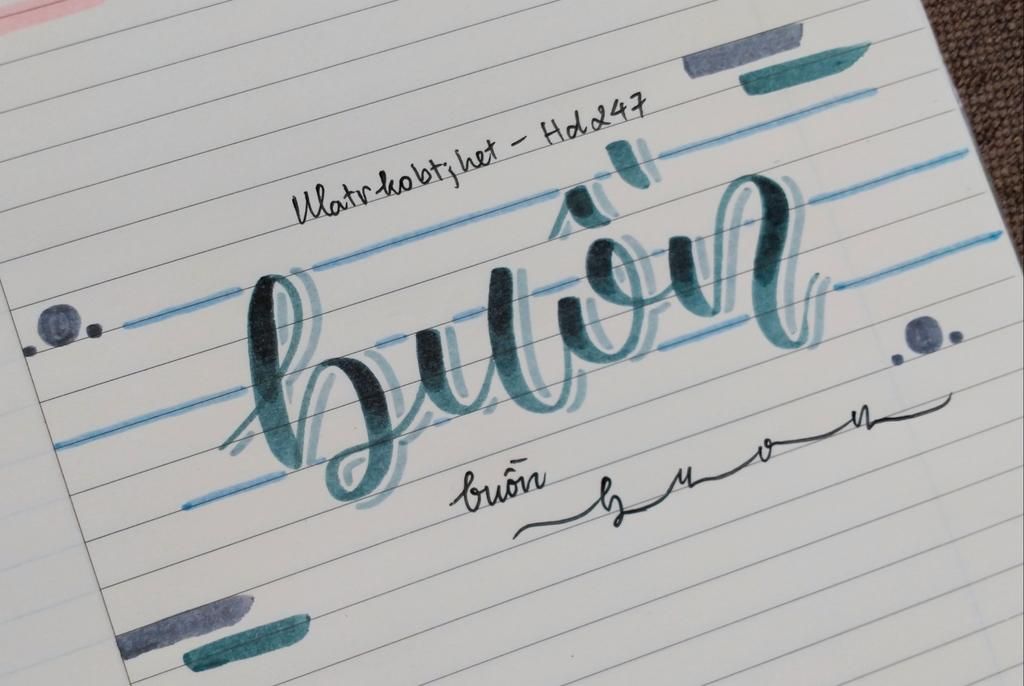 Matrkobt;het - Hd247
buồn
buồn
buon